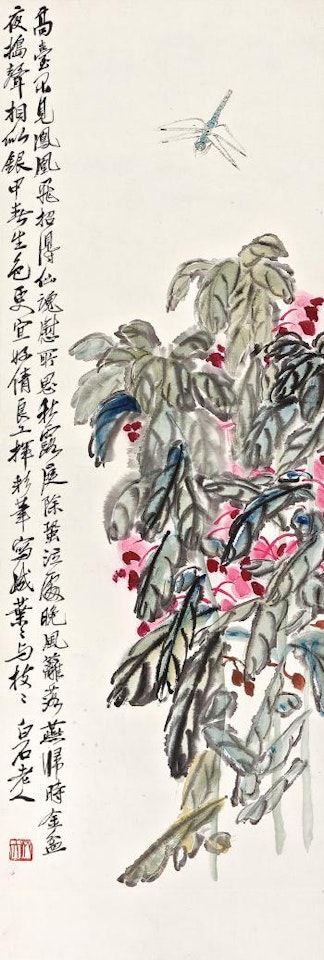 高臺不見鳳凰飛招得仙魂慰所思秋露庭除蛩泣處晚風籬落燕歸時金盆
夜搗聲相似銀甲春生色更宜好倩良工揮彩筆寫成葉〻與枝〻 白石老人